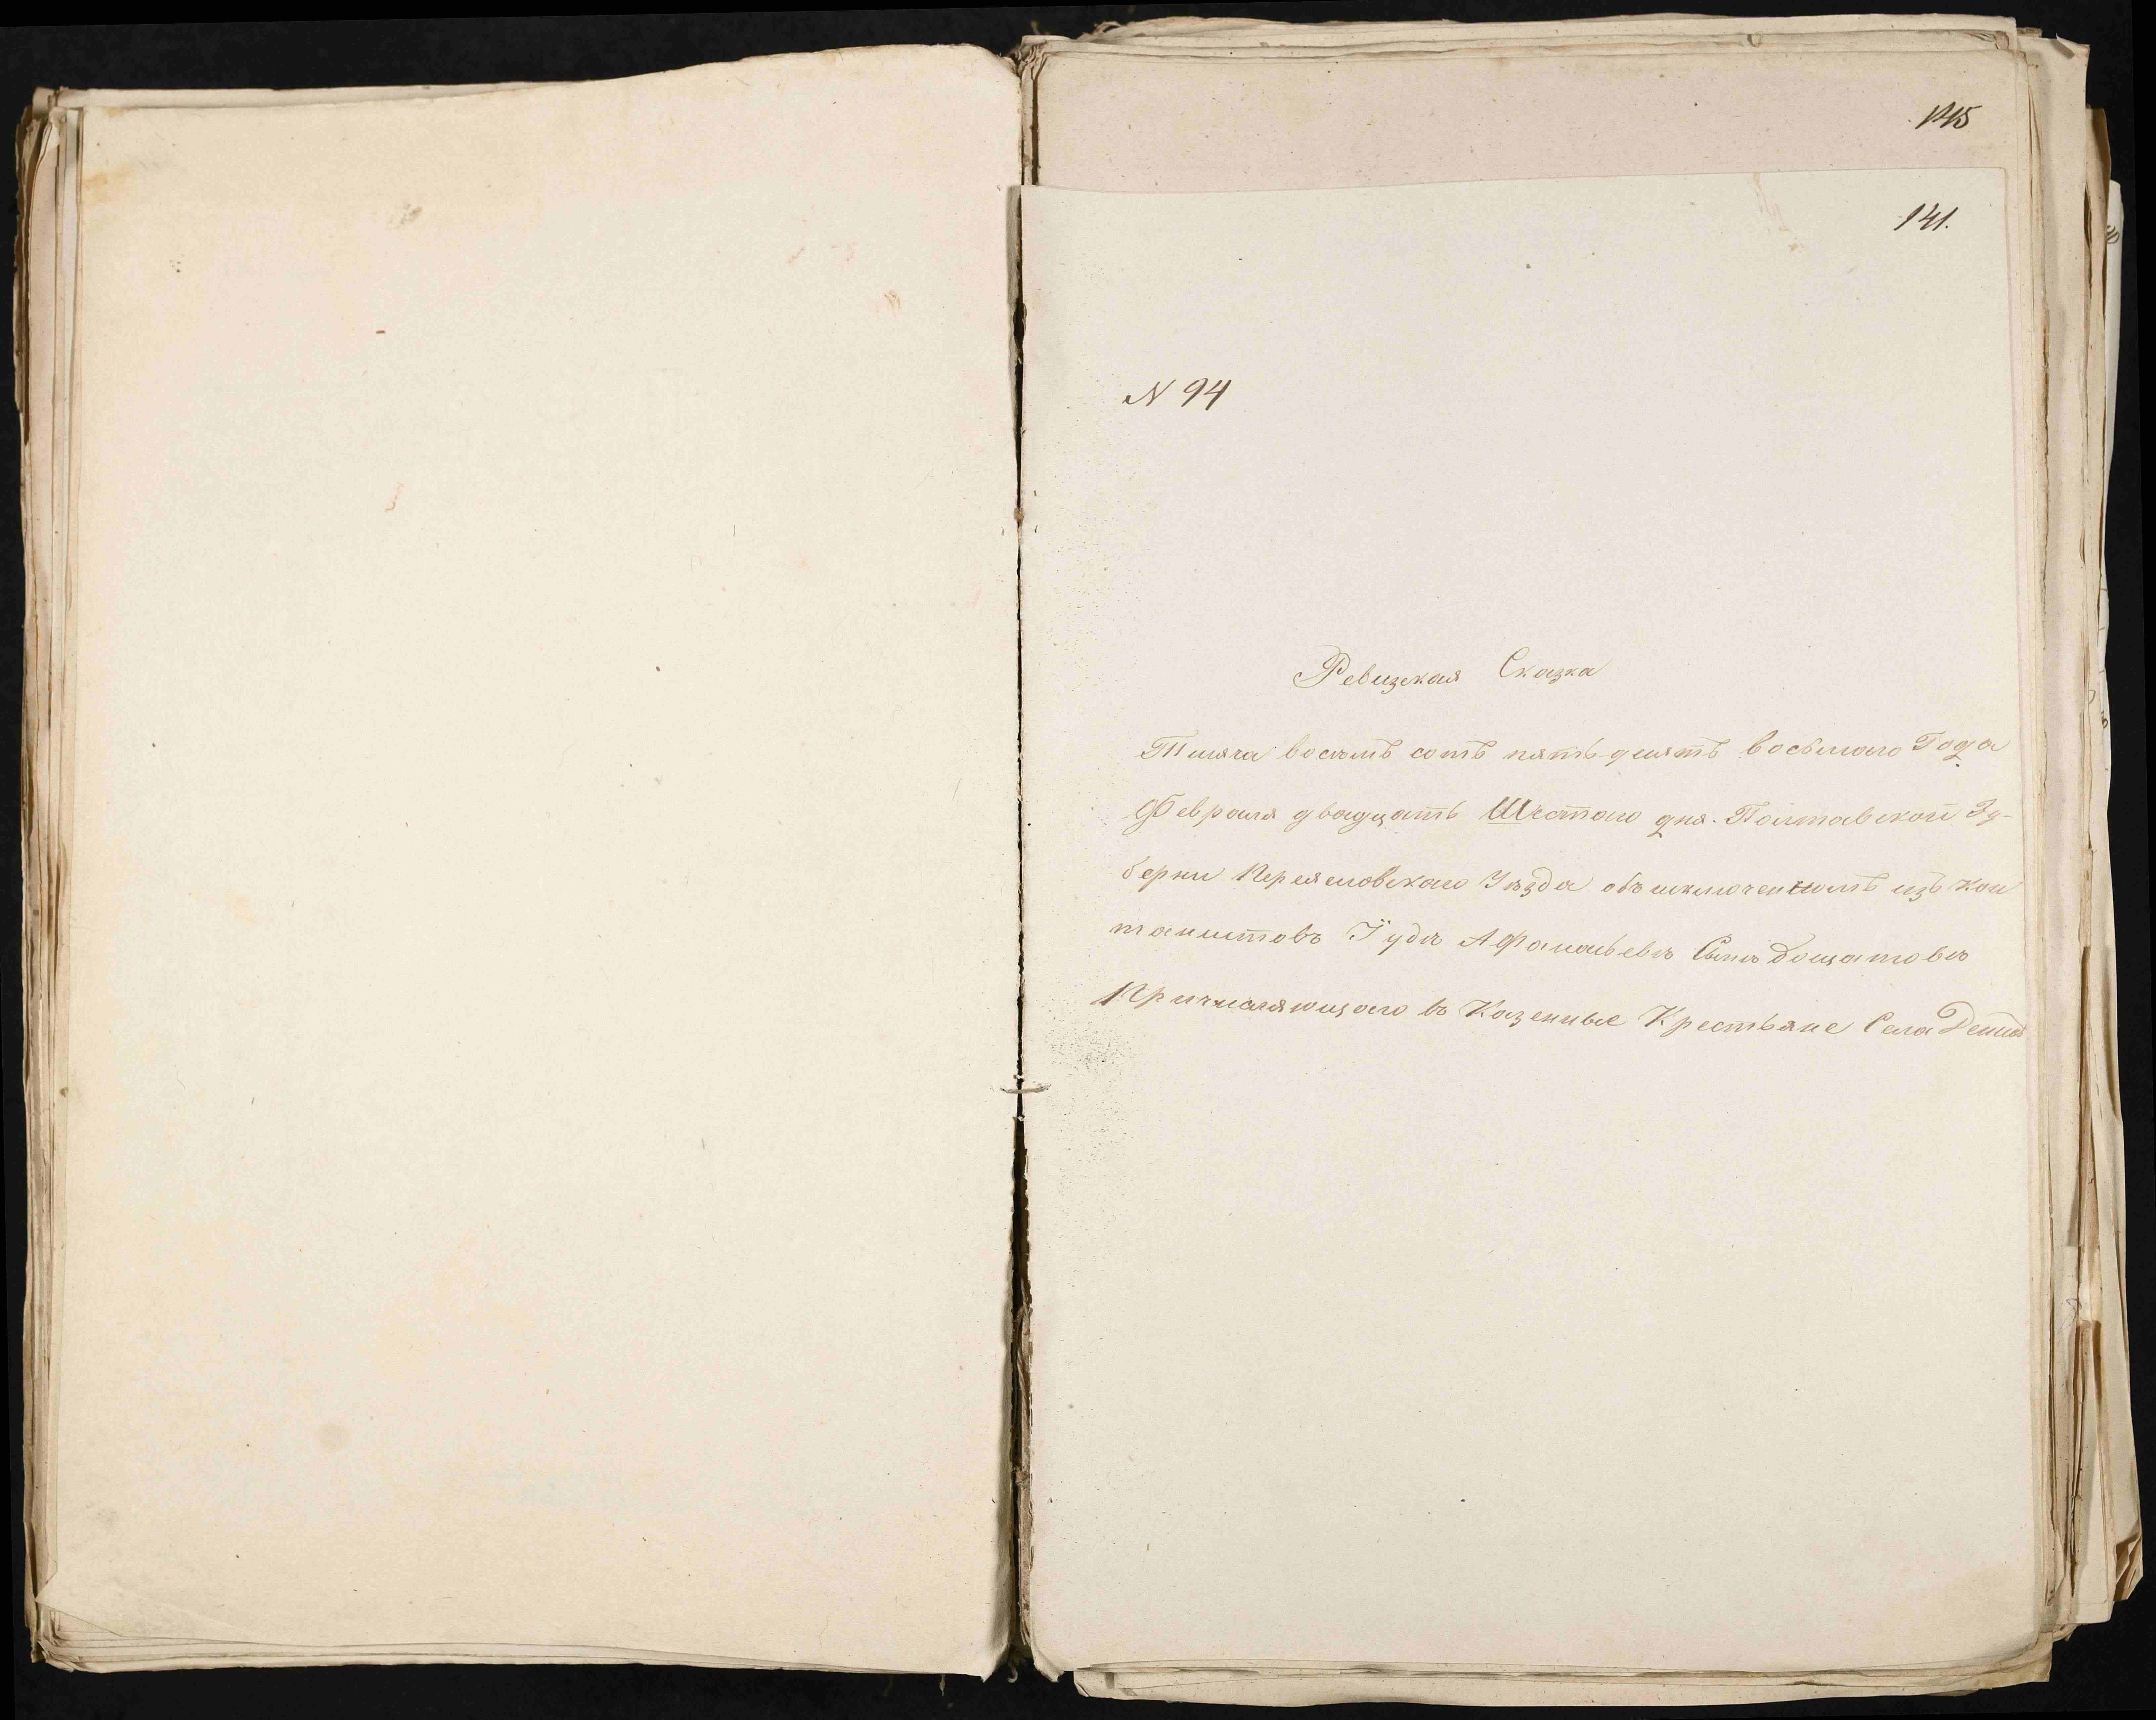 145
141.
N 94
Ревизская Сказка
Тисяча восемъ сотъ пять-десятъ восьмаго Года
Февраля двадцать Шестаго дня. Полтавской Гу-
берни Переясловскаго Уѣзда объ исключенномъ изъ кан
танистовъ Іуда Афанасьевъ Сынъ Дощатовъ
Причисляющаго въ Казенные Крестьяне Села